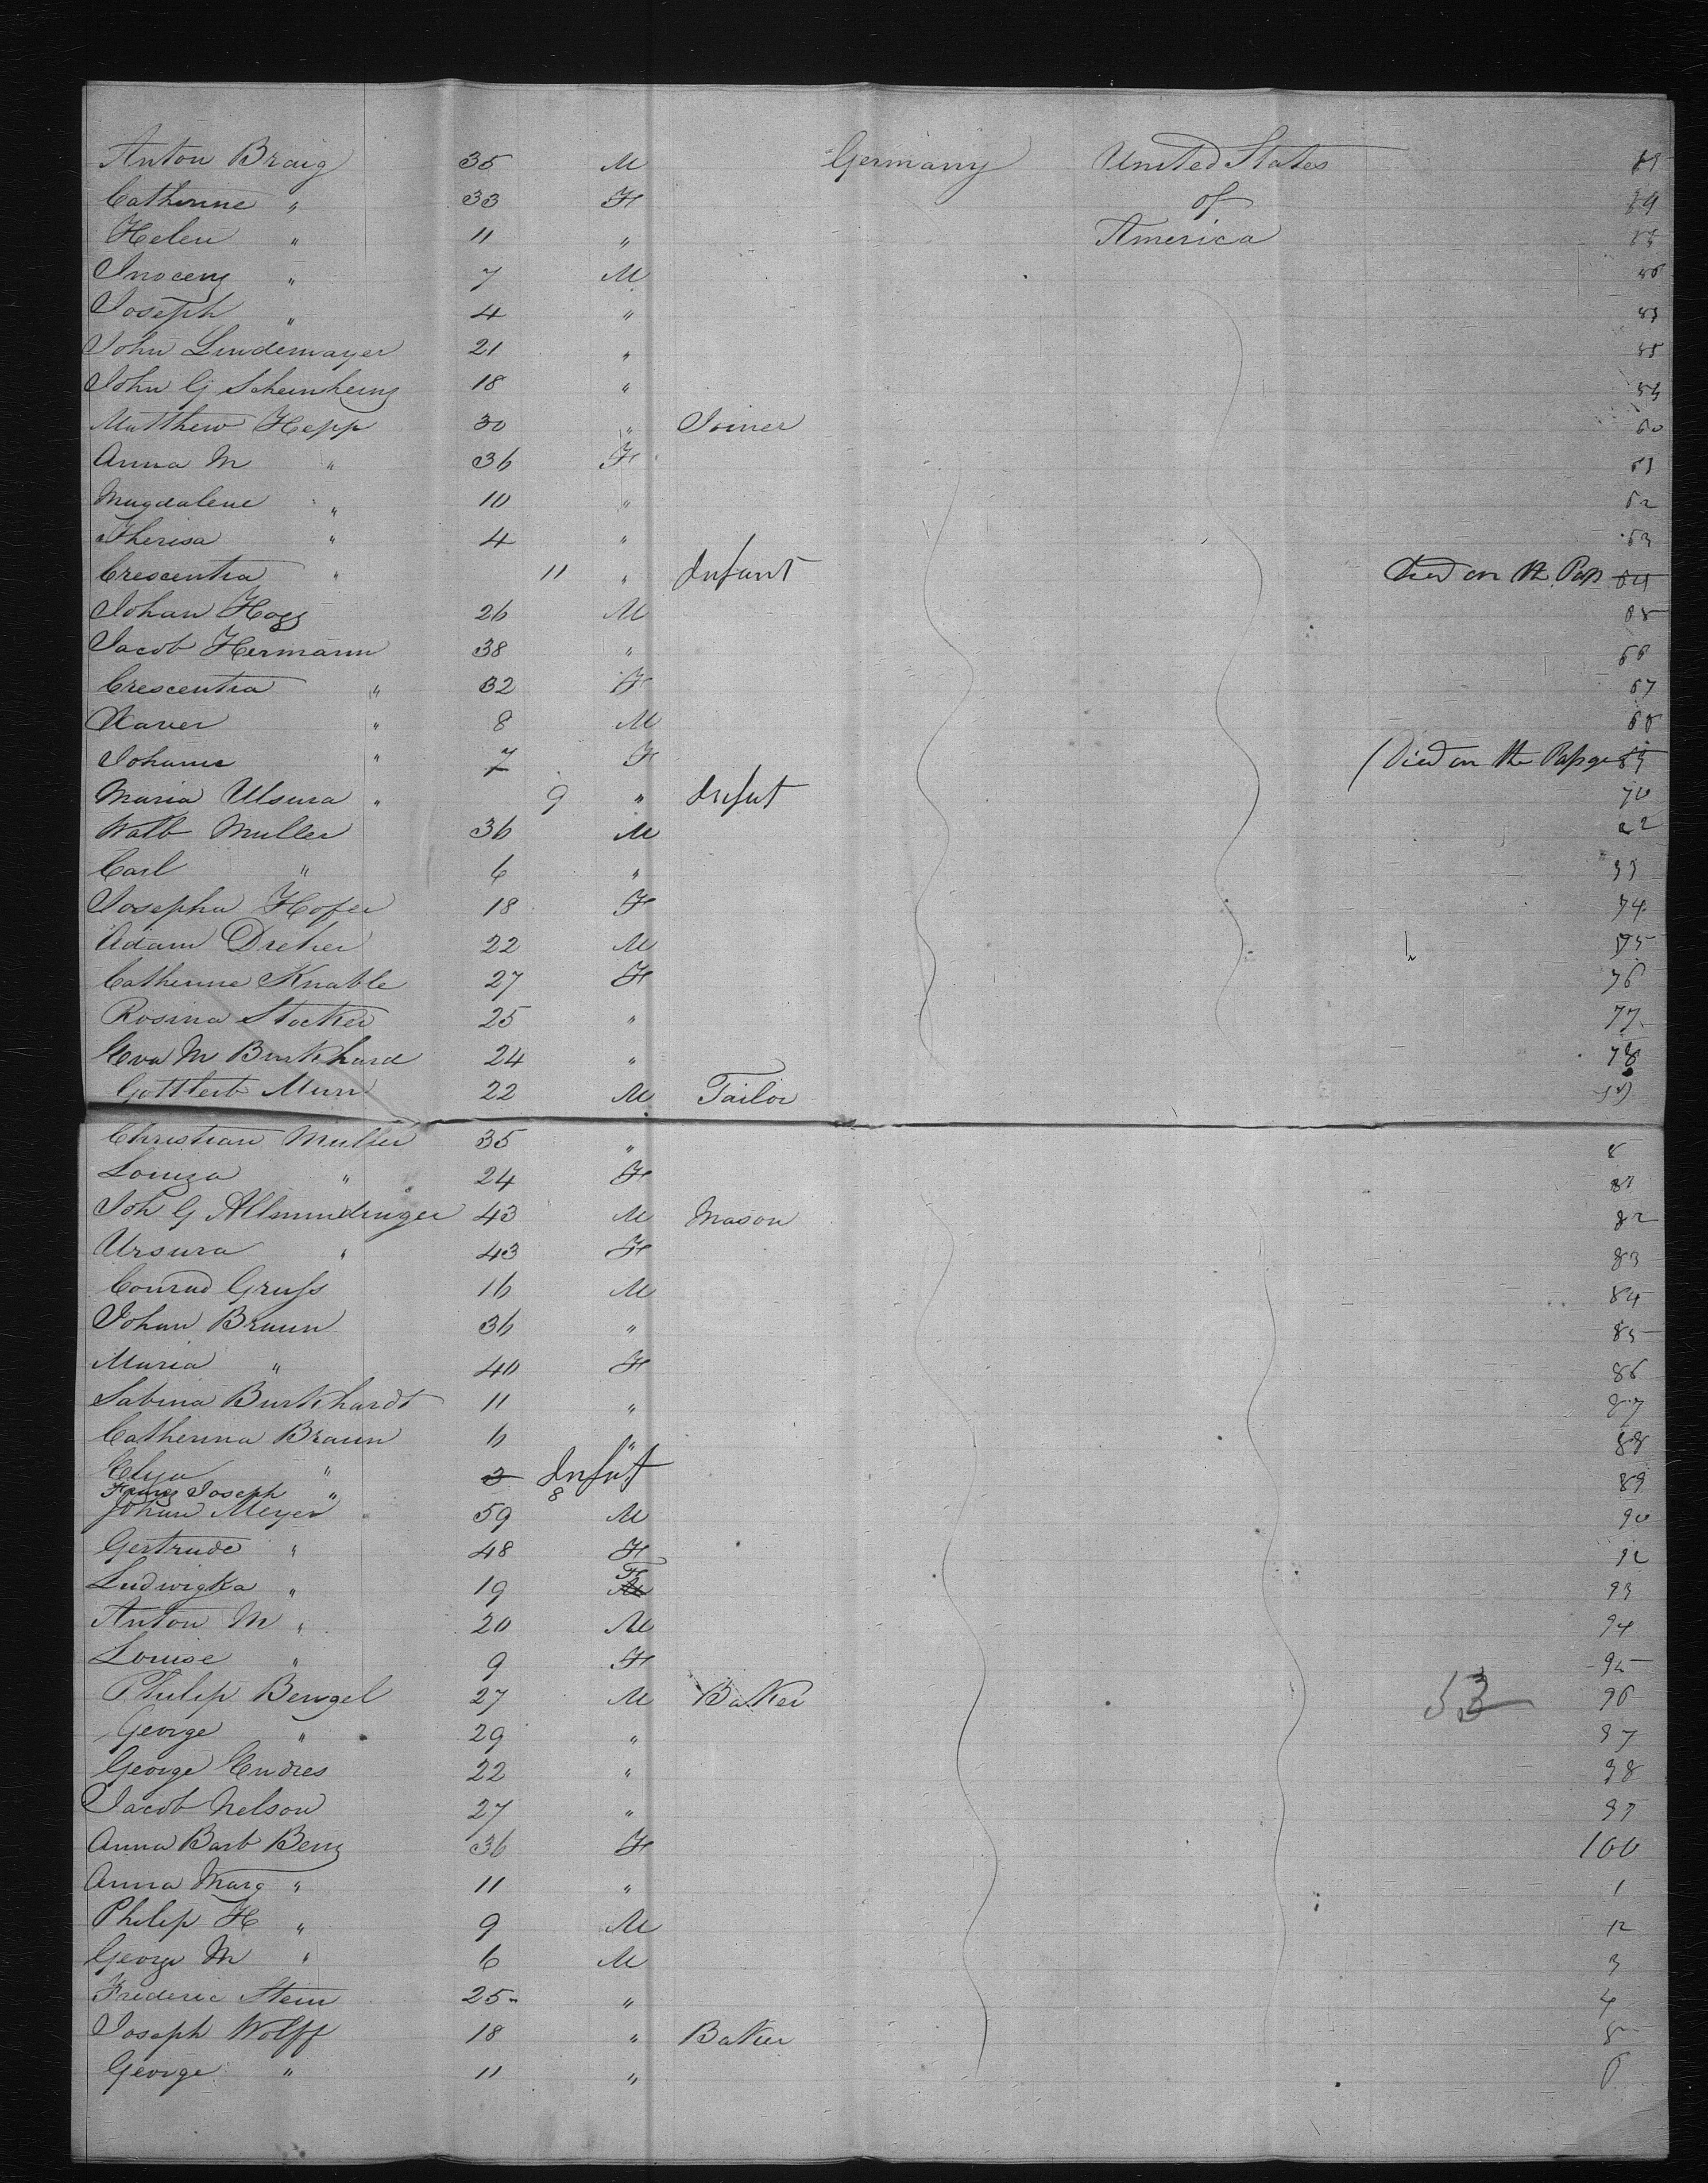 Anton Braig 35 M Germany United States
Catherine " 33 F of 59
Helen " 11 " America
Inocenz " 7 M
Joseph " 4 "
John Lindemayer 21 "
John G 18 "
Matthew Hepp 30 " Joiner 60
Anna M " 36 F 61
Magdalene " 10 " 62
Therisa " 4 " 63
Crescentia " 11 " Infant died on the Pass 64
Johan Hogg 26 M 65
Jacob Hermann 38 " 66
Crescentia " 32 F 67
Xaver " 8 M 68
Johanne " 7 F (Died on the Passge 69
Maria Ulsura " 9 " Infat 70
Walb Muller 36 M
Carl " 6 "
Josepha Hofer 18 F 74
Adam Dreher 22 M 75
Catherine Knable 27 F 76
Rosina Stocker 25 " 77
Eva M Burkhard 24 " 78
Gottlieb Murr 22 M Tailor
Christian Muller 35 " 8
Louiza " 24 F 81
Joh G Allmundinger 43 M Mason 82
Ursura " 43 F 83
Conrad Gruss 16 M 84
Johan Braun 36 " 85
Maria " 40 F 86
Sabina Burkhardt 11 " 87
Catherina Braun 6 " 88
" 2 Infat 89
Franz Joseph " 8
Johan Meyer 59 M 90
Gertrude " 48 F 92
Ludwigka " 19 F M 93
Anton M " 20 M 94
Louise " 9 F 95
Philip Bengel 27 M Baker 53 96
George " 29 " 97
George Endres 22 " 98
Jacob Nelson 27 " 99
Anna Barb Benz 36 F 100
Anna Marg " 11 " 1
Philip H " 9 M 12
George M " 6 M 3
Frederic Stein 25 " 4
Joseph Wolff 18 " Baker 5
George " 11 " 6